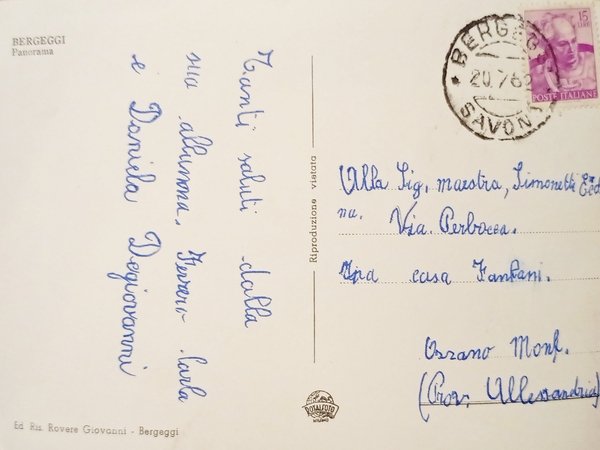 BERGEGGI
Panorama
Tanti saluti dalla
sua allunna, Ferrero Carla
e Daniela Degiovanni
Riproduzione vietata
Ed Ris. Rovere Giovanni - Bergeggi
ROTALFOTO
MILANO
BERGEGGI
20.7.62
SAVONA
15
LIRE
POSTE ITALIANE
Alla Sig. maestra, Simonetti
na. Via. Perbocca.
Ipa casa Fantani.
Ozzano Monf.
(Prov. Allessandria)